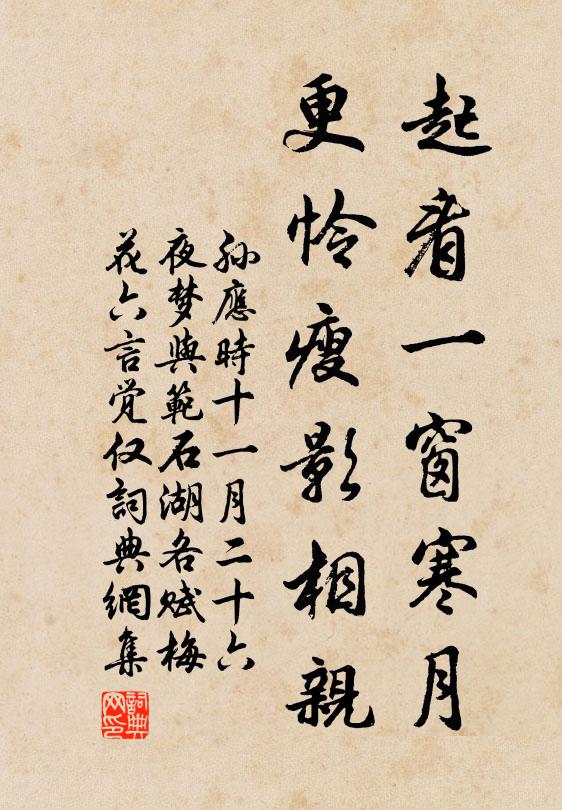 起看一窗寒月
更怜瘦影相親
孙應時十一月二十六
夜梦與範石湖各赋梅
花六言觉仅詞典網集
詞典
网印